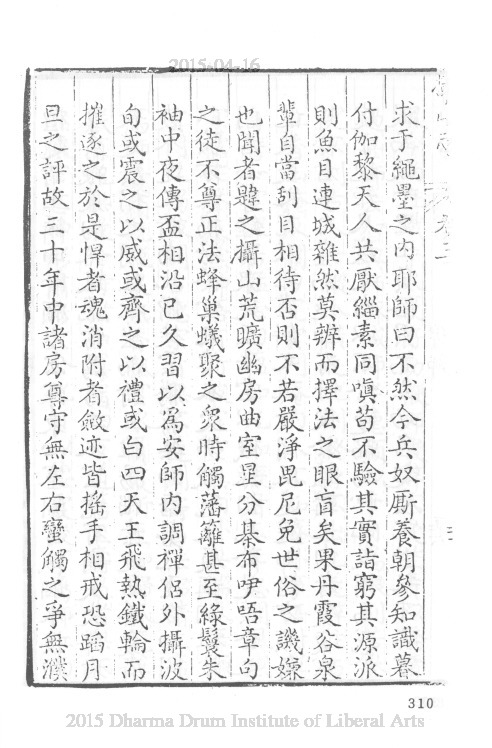 2015-04-16
求于繩墨之内耶師曰不然今兵奴厮養朝參知識暮
付伽黎天人共厭緇素同嗔苟不驗其實詣窮其源派
則魚目連城雜然莫辨而擇法之眼盲矣果丹霞谷泉
輩自當刮目相待否則不若嚴淨毘尼免世俗之譏嫌
也聞者韙之攝山荒曠幽房曲室星分棊布吚唔章句
之徒不尊正法蜂巢蟻聚之衆時觸藩籬甚至綠鬟朱
袖中夜傳盃相沿已久習以爲安師内調禪侣外攝波
旬或震之以威或齊之以禮或白四天王飛執鐵輪而
摧逐之於是悍者魂消附者斂迹皆搖手相戒恐蹈月
旦之評故三十年中諸房尊守無左右蠻觸之爭無濮
310
2015 Dharma Drum Institute of Liberal Arts